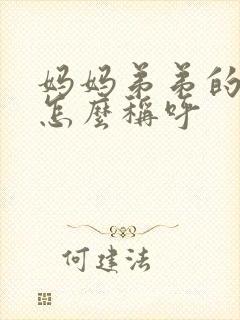 妈妈弟弟的
怎麼稱呼
何建法